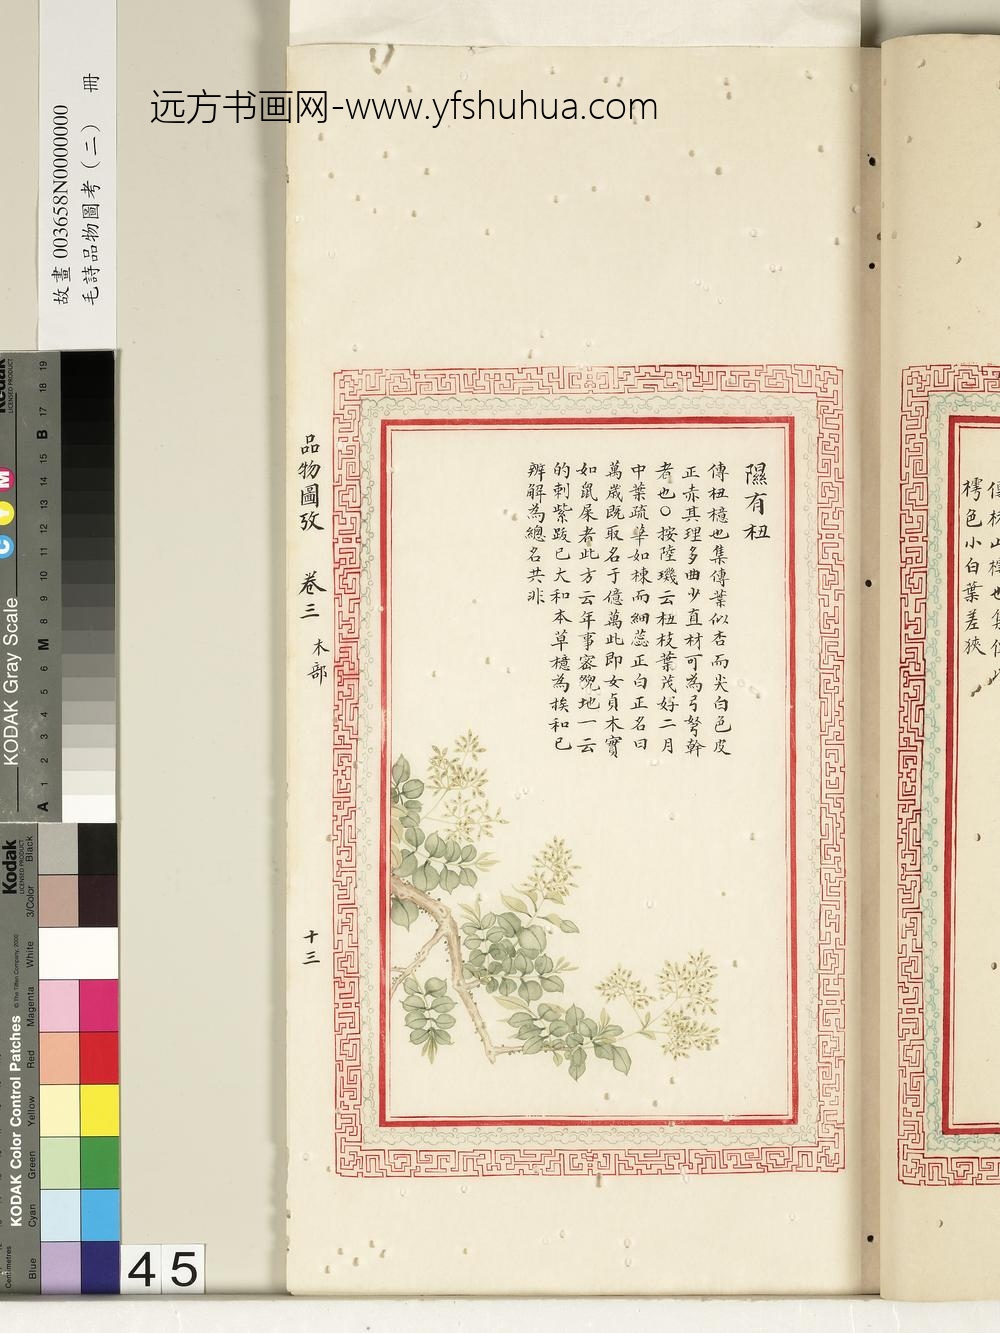 远方书画网-www.yfshuhua.com
故畫003658N0000000
毛詩品物圖考（二） 冊
隰有杻
傳杻檍也集傳葉似杏而尖白色皮
正赤其理多曲少直材可為弓弩幹
者也○按陸璣云杻枝葉茂好二月
中葉疏華如楝而細蕊正白正名曰
萬歲既取名于億萬此即女貞木實
如鼠屎者此方云年事容覬地一云
的刺紫跋已大和本草檍為挨和已
辨解為總名共非
品物圖攷 卷三 木部
十三
樗色小白葉差狹
KODAK Gray Scale
A 1 2 3 4 5 6 M 8 9 10 11 12 13 14 15 B 17 18 19
Kodak
LICENSED PRODUCT
C Y M
Kodak
LICENSED PRODUCT
KODAK Color Control Patches
© The Tiffen Company, 2000
Centimetres
Blue Cyan Green Yellow Red Magenta White 3/Color Black
45